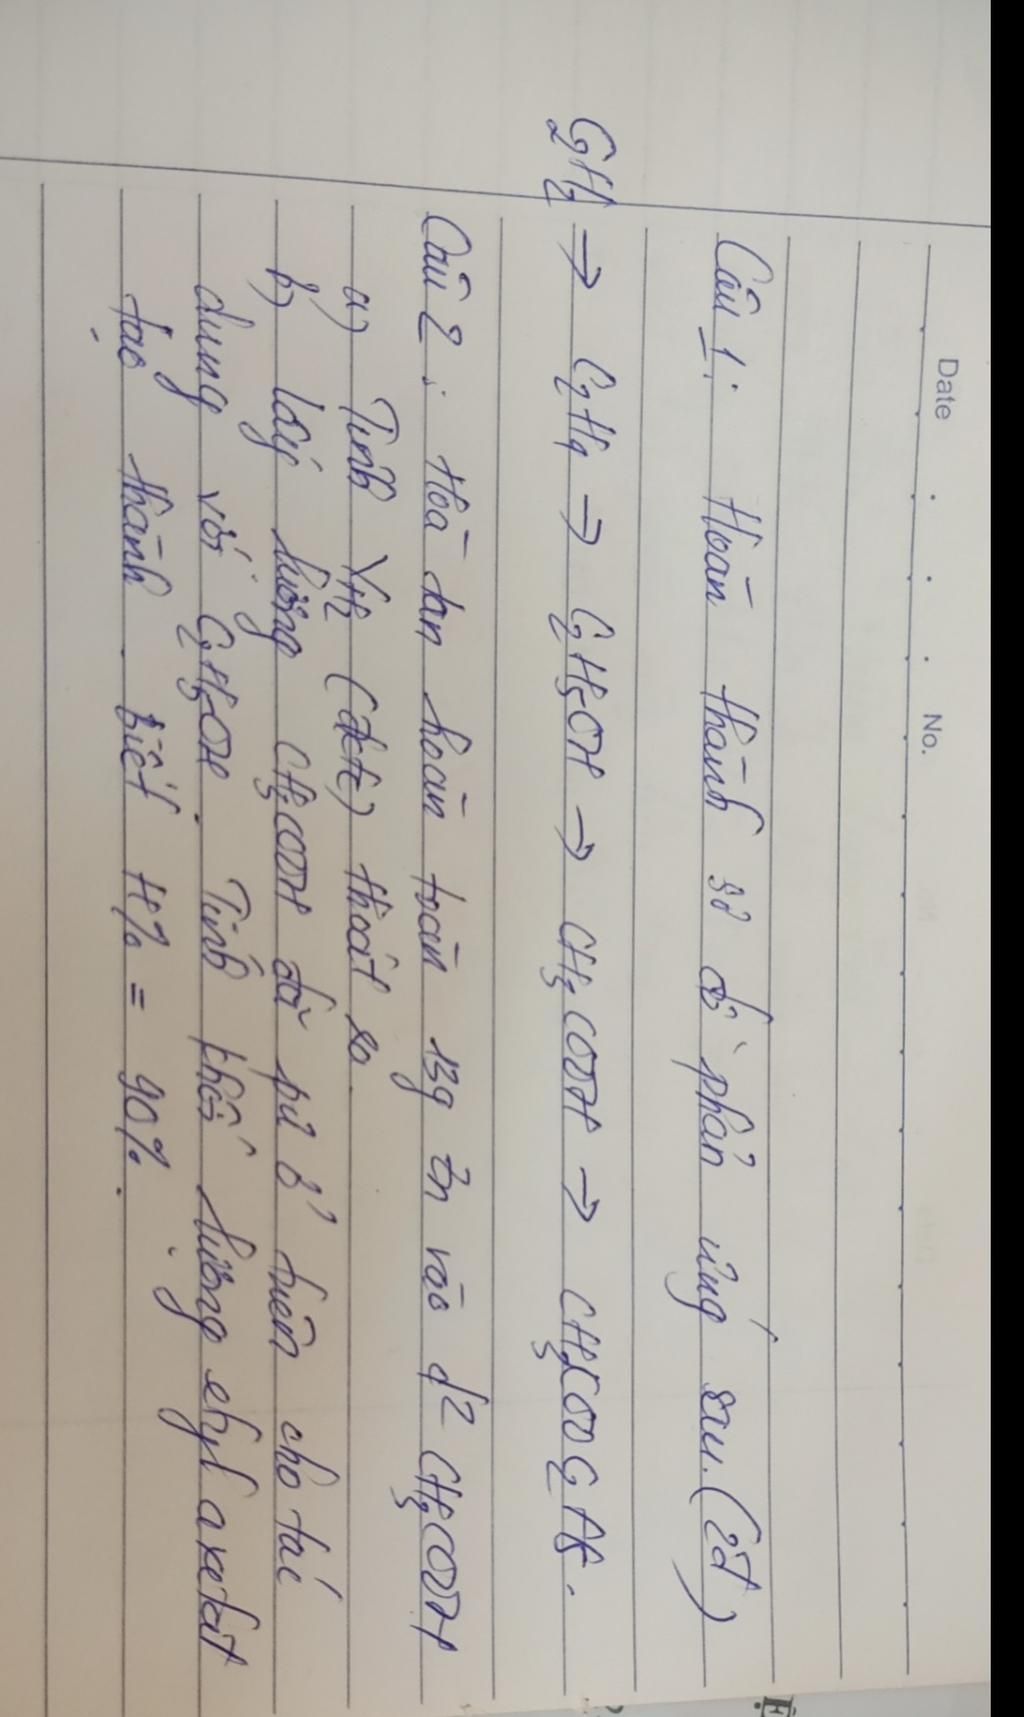 Date No.
Câu 1: Hoàn thành sơ đồ phản ứng sau. (2đ)
C2H2 → C2H4 → C2H5OH → CH3COOH → CH3COOC2H5.
Câu 2: Hoà tan hoàn toàn 13g Zn vào d2 CH3COOH
a) Tính VH2 (đktc) thoát ra.
b) lấy lượng CH3COOH đã pứ ở trên cho tác
dụng với C2H5OH. Tính khối lượng etyl axetat
tạo thành. biết H% = 90%.